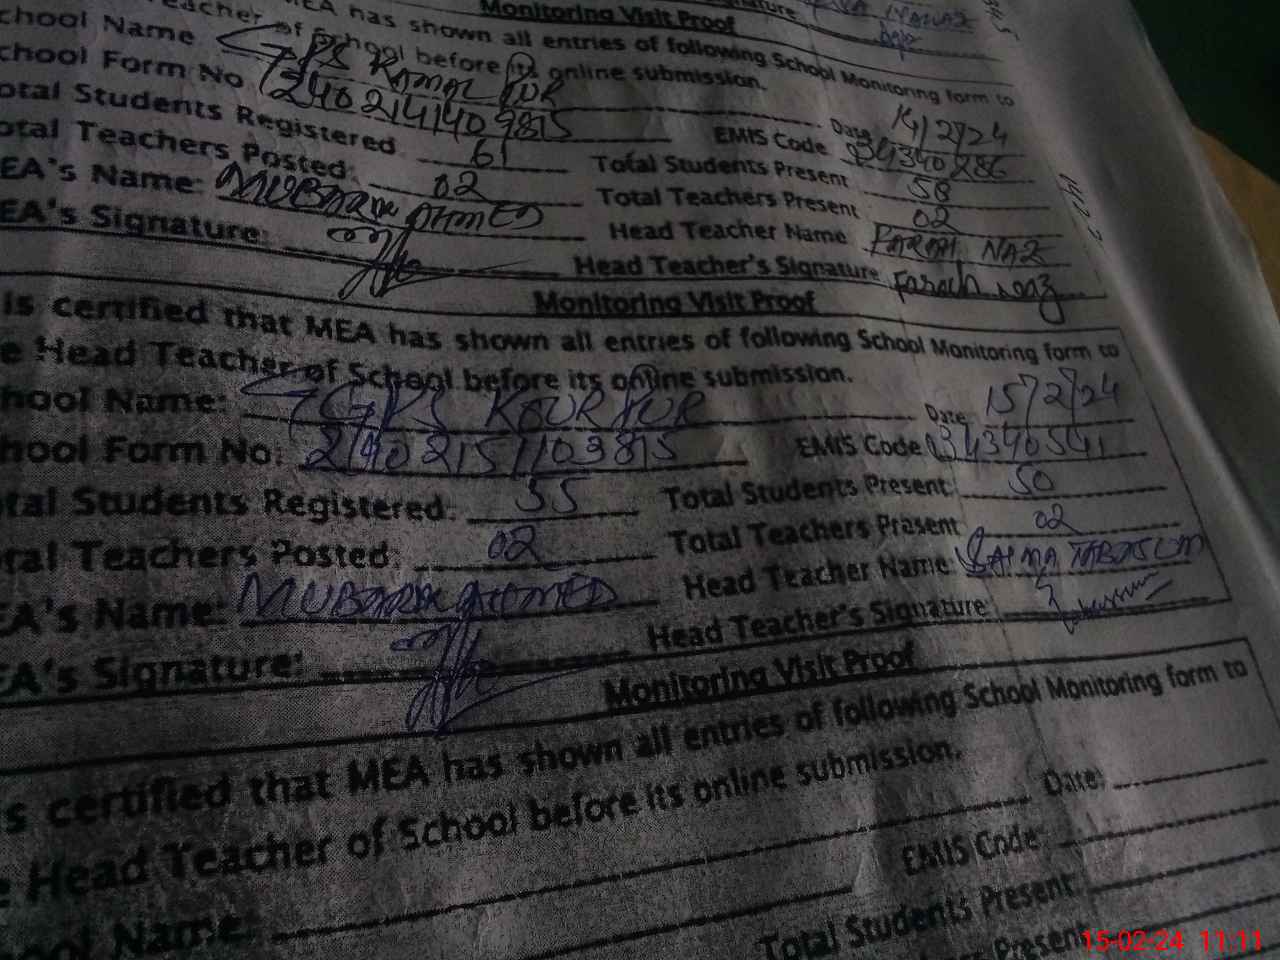 Monitoring Visit Proof
MEA has shown all entries of following School Monitoring form to
eacher of School before its online submission.
chool Name GPS KAMAL PUR Date 14/2/24
chool Form No EMIS Code 34340286
otal Students Registered 61 Total Students Present 58
otal Teachers Posted: 02 Total Teachers Present 02
EA's Name: MUBARAK AHMED Head Teacher Name FARAH NAZ
EA's Signature: Head Teacher's Signature Farah Naz
Monitoring Visit Proof
is certified that MEA has shown all entries of following School Monitoring form to
e Head Teacher of School before its online submission.
hool Name: GGPS KOUR PUR Date 15/2/24
hool Form No: 2402151103815 EMIS Code 34340541
tal Students Registered: 55 Total Students Present: 50
tal Teachers Posted: 02 Total Teachers Present 02
EA's Name: MUBARAK AHMED Head Teacher Name: SALMA TABASUM
EA's Signature: Head Teacher's Signature:
Monitoring Visit Proof
s certified that MEA has shown all entries of following School Monitoring form to
e Head Teacher of School before its online submission.
Date:
ool Name: EMIS Code
Total Students Present:
Present:
15-02-24 11:11